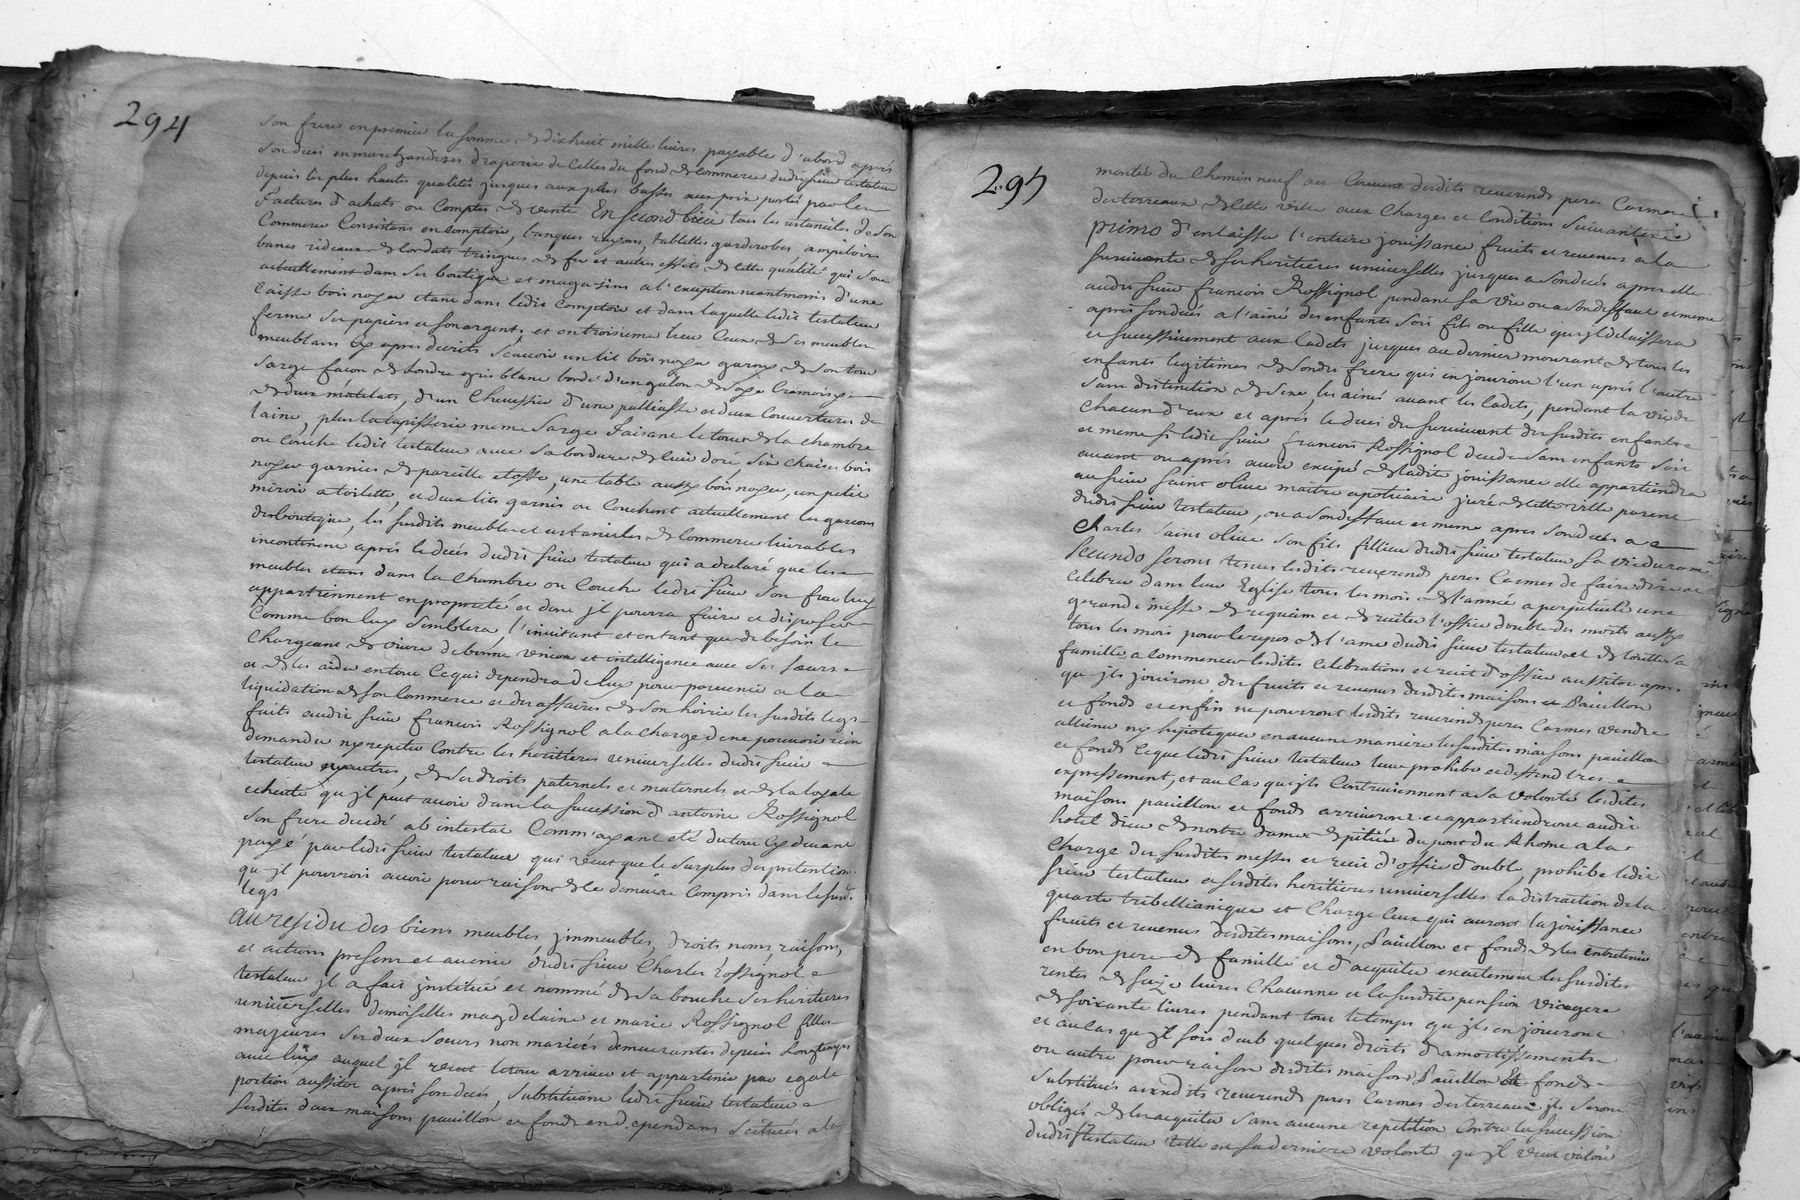 294
son frere en premier la somme de dixhuit mille livres payable d'abord après
son decès en marchandises draperie de celles du fond de commerce dudit sieur testateur
depuis les plus hautes qualités jusques aux plus basses aux prix portés par les
Factures d'achats ou Comptes de vente En second lieu tous les ustanciles de son
Commerce Consistens en comptoir, banques rayons, tablettes garderobes,
bancs rideaux de Cordats tringues de fer et autres effets de cette qualité qui sont
actuellement dans ses boutique et magasins a l'exception neantmoins d'une
Caisse bois noyer etant dans ledit Comptoir et dans laquelle ledit testateur
ferme ses papiers et son argent, et en troisieme lieu Ceux de ses meubles
meublans cy apres decrits Scavoir un lit bois noyer garny de son tour
Sarge façon de Londre gris blanc bordé d'un galon de soye Cramoisy
de deux matelats, d'un Chevessier d'une palliasse et deux Couvertures de
laine, plus la tapisserie meme Sarge Faisant le tour de la chambre
ou Couche ledit testateur avec sa bordure de cuir doré, six chaises bois
noyer garnies de pareille etoffe, une table aussy bois noyer, un petit
miroir a toilette, et deux lits garnis ou Couchent actuellement les garcons
de boutique, les susdits meubles et ustanciles de Commerce livrables
incontinent après le decès dudit sieur testateur qui a declaré que les
meubles etans dans la Chambre ou Couche ledit sieur son frere luy
appartiennent en propriété et dont jl pourra faire et disposer
Comme bon luy Semblera l'invitant et entant que de besoin le
Chargeant de vivre de bonne union et intelligence avec ses soeurs
et de les aider en tout Ce qui dependra de luy pour parvenir a la
liquidation de son Commerce et des affaires de son hoirie les susdits legs
faits audit sieur francois Rossignol a la charge de ne pouvoir rien
demander ny repeter Contre les heritieres universelles dudit sieur
testateur ny autres, de ses droits paternels et maternels et de la loyale
echeute qu'jl peut avoir dans la succession d'antoine Rossignol
son frere decedé ab intestat Comm'ayant eté du tout cy devant
payé par ledit sieur testateur qui veut que le surplus des pretentions
qu'jl pourroit avoir pour raison de ce demeure Compris dans le susd.
legs
Au residu des biens meubles jmmeubles, droits noms, raisons,
et actions presens et avenir dudit sieur Charles rossignol
testateur jl a fait jnstitué et nommé de sa bouche ses heritieres
universelles demoiselles magdelaine et marie Rossignol filles
majeures ses deux soeurs non mariées demeurantes depuis Longtemps
avec luy auquel jl veut le tout arriver et appartenir par egale
portion aussitot après son decès, substituant ledit sieur testateur
Lesdites deux maisons pavillon et fonds en dependans Scitués a la
295
montée du Chemin neuf au Couvent desdits reverends peres Carmes
des terreaux de Cette ville aux Charges et Conditions Suivantes
primo d'en laisser l'entiere jouissance fruits et revenus a la
survivante de ses heritieres universelles jusques a son decès apres elle
audit sieur francois Rossignol pendant sa vie ou a son deffaut et meme
après son decès a l'ainé des enfants Soit fils ou fille qu'jl delaissera
et successivement aux Cadets jusques au dernier mourant de tous les
enfants legitimes de sondit frere qui en jouiront l'un après l'autre
sans distinction de sexe, les ainés avant les Cadets, pendant la vie de
Chacun d'eux et après le decès du survivant des susdits enfants
et meme si ledit sieur francois Rossignol decede sans enfants Soit
avant ou après avoir de ladite jouissance elle appartiendra
au sieur saint olive maitre apotiaire juré de cette ville parent
dudit sieur testateur, ou a son deffaut et meme apres son decès a
Charles saint olive son fils fillieu dudit sieur testateur sa vie durant
Secundo seront tenus lesdits reverends peres Carmes de faire dire et
Celebrer dans leur Eglise tous les mois de l'année a perpetuité une
grande messe de requiem et de reciter l'office double des morts aussy
tous les mois pour le repos de l'ame dudit sieur testateur et de toutte sa
famille a commencer lesdites Celebrations et recit d'office aussitot apres
qu'jls jouiront des fruits et revenus desdites maisons et Pavillon
et fonds et enfin ne pourront lesdits reverends peres Carmes vendre
alliener ny hipotequer en aucune maniere les susdites maisons pavillon
et fonds Ce que ledit sieur testateur leur prohibe et deffend tres
expressement, et au Cas qu'jls Contreviennent a sa volonté lesdites
maisons pavillon et fonds arriveront et appartiendront audit
hotel Dieu de nostre dame de pitié du pont du Rhone a la
Charge des susdites messes et recit d'office double, prohibe ledit
sieur testateur a sesdites heritieres universelles la distraction de la
quarte tribellianique et Charge Ceux qui auront la jouissance
fruits et revenus desdites maisons, Pavillon et fonds de les entretenir
en bon pere de famille et d'acquiter exactement les susdites
rentes de seize livres Chacunne et la susdite pension viagere
de soixante livres pendant tout le temps qu'jls en joueront
et au Cas qu'jl soit dub quelques droits d'amortissements
ou autre pour raison desdites maisons Pavillon et fonds
substitués auxdits reverends peres Carmes des terreaux jls seront
obligés de les acquiter sans aucune repetition Contre la succession
dudit testateur telle est sa derniere volonté qu'jl veut valoir